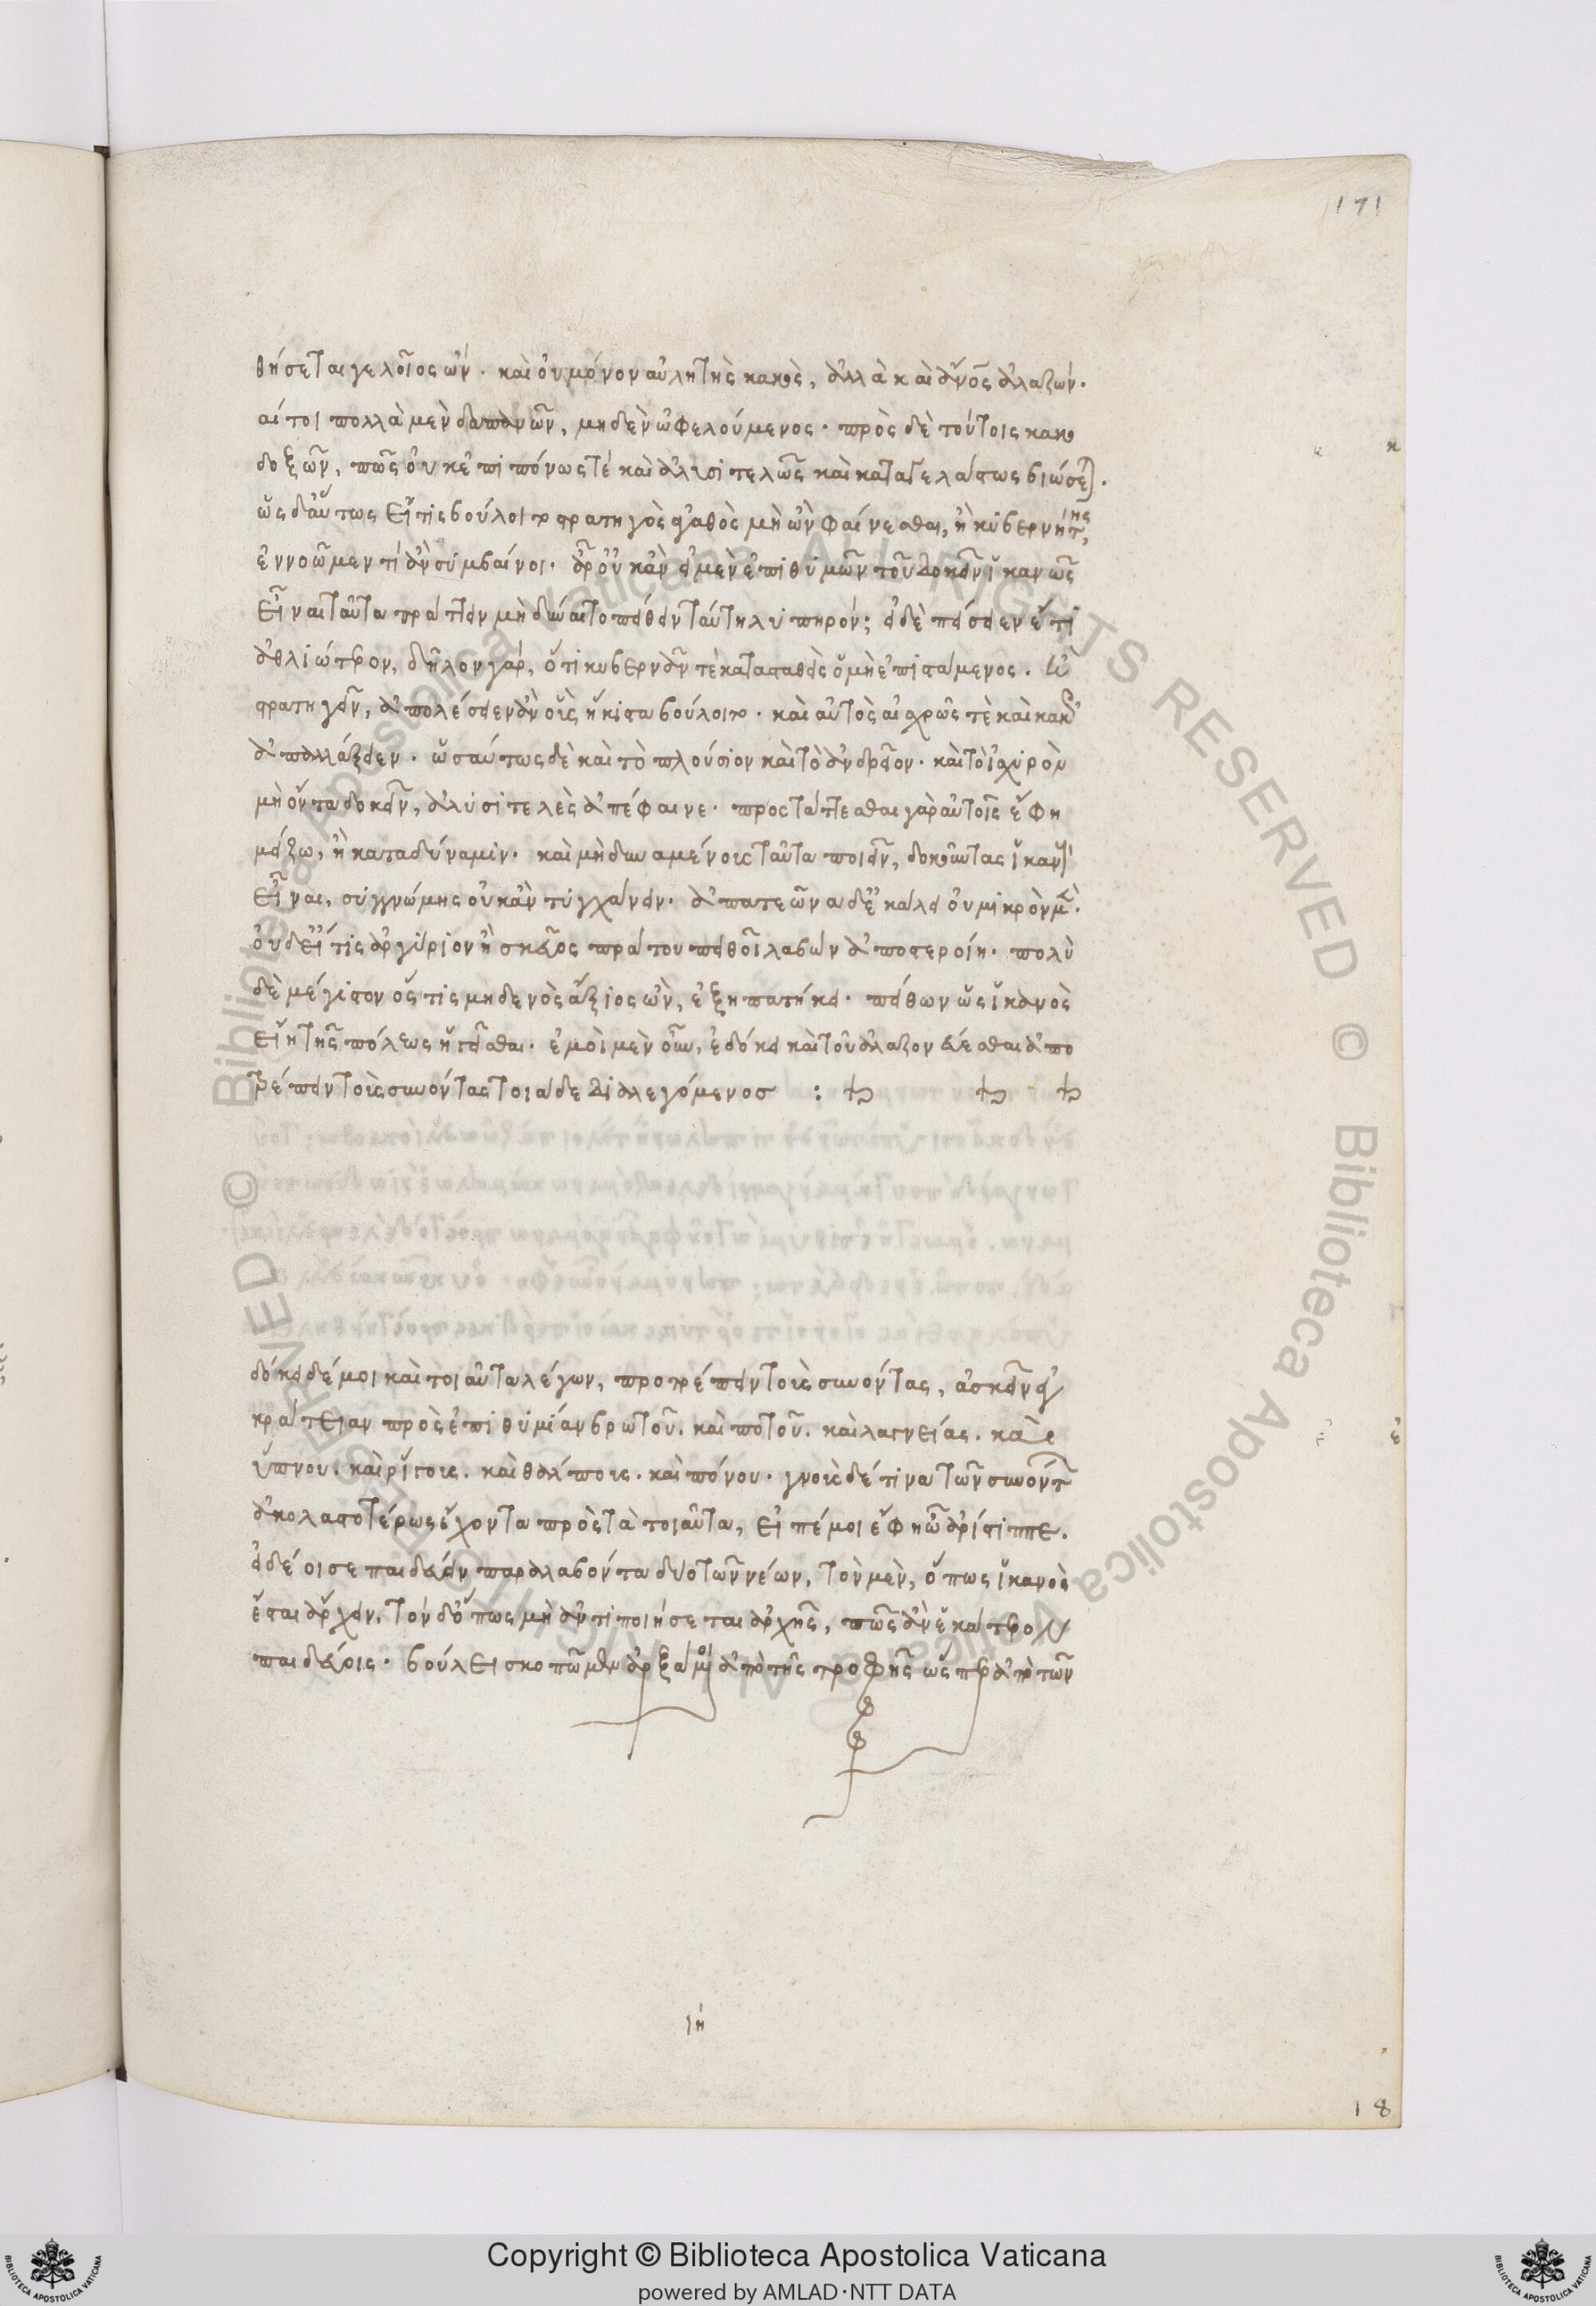 171
θήσεται γελοῖος ὤν. καὶ οὐ μόνον αὐλητὴς κακὸς, ἀλλὰ καὶ ἄνος ἀλαζών.
αίτοι πολλὰ μὲν δαπανῶν, μηδὲν ὠφελούμενος. πρὸς δὲ τούτοις κακο
δοξῶν, πῶς οὐκ ἐπιπόνως τέ καὶ ἀλυσιτελῶς καὶ καταγελάστως βιώσεται.
κ
ὡς δ' αὔτως εἴ τις βούλοιτο στρατηγὸς ἀγαθὸς μὴ ὢν φαίνεσθαι, ἢ κυβερνήτης,
ἐννοῶμεν τί ἂν συμβαίνοι. ἆρ' οὐκ ἂν εἰ μὲν ἐπιθυμῶν τοῦ δοκεῖν ἱκανῶς
εἶναι ταῦτα πράττειν μὴ δύναιτο πείθειν ταύτη λυπηρόν; εἰ δὲ πείσειεν ἔτι
ἀθλιώτερον, δῆλον γάρ, ὅτι κυβερνᾶν τέ κατασταθεὶς ὁ μὴ ἐπιστάμενος. ἢ
στρατηγεῖν, ἀπολέσειεν ἂν οὓς ἥκιστα βούλοιτο. καὶ αὐτὸς αἰσχρῶς τὲ καὶ κακῶς
ἀπαλλάξειεν. ὡσαύτως δὲ καὶ τὸ πλούσιον καὶ τὸ ἀνδρεῖον. καὶ τὸ ἰσχυρὸν
μὴ ὄντα δοκεῖν, ἀλυσιτελὲς ἀπέφαινε. προστάττεσθαι γὰρ αὐτοῖς ἔφη
μείζω, ἢ κατὰ δύναμιν. καὶ μὴ δυναμένοις ταῦτα ποιεῖν, δοκοῦντας ἱκανοὺς
εἶναι, συγγνώμης οὐκ ἂν τυγχάνειν. ἀπατεῶνα δ' ἐκάλει οὐ μικρὸν μὲν.
οὐδ' εἴ τις ἀργύριον ἢ σκεῦος πρά του πειθοῖ λαβὼν ἀποστεροίη. πολὺ
δὲ μέγιστον ὅστις μηδενὸς ἄξιος ὢν, ἐξηπατήκει. πείθων ὡς ἱκανὸς
εἴη τῆς πόλεως ἡγεῖσθαι. ἐμοὶ μὲν οὖν, ἐδόκει καὶ τοῦ ἀλαζονεύεσθαι ἀπο
τρέπειν τοὺς συνόντας τοιάδε διαλεγόμενοσ :
δόκει δέ μοι καὶ τοιαῦτα λέγων, προτρέπειν τοὺς συνόντας, ἀσκεῖν ἐγ
κράτειαν πρὸς ἐπιθυμίαν βρωτοῦ. καὶ ποτοῦ. καὶ λαγνείας. καὶ
ε
ὕπνου. καὶ ρίγους. καὶ θάλπους. καὶ πόνου. γνοὺς δέ τινα τῶν συνόντων
ἀκολαστοτέρως ἔχοντα πρὸς τὰ τοιαῦτα, εἰπέ μοι ἔφη ὦ ἀρίστιππε.
εἰ δέοι σε παιδεύειν παραλαβόντα δύο τῶν νέων, τὸν μὲν, ὅπως ἱκανὸς
ἔσται ἄρχειν, τὸν δ' ὅπως μὴ ἀντιποιήσεται ἀρχῆς, πῶς ἂν ἑκάτερον
παιδεύοις. βούλει σκοπῶμεν ἀρξάμενοι ἀπὸ τῆς τροφῆς ὥσπερ ἀπὸ τῶν
ιή
18
Copyright © Biblioteca Apostolica Vaticana
powered by AMLAD·NTT DATA